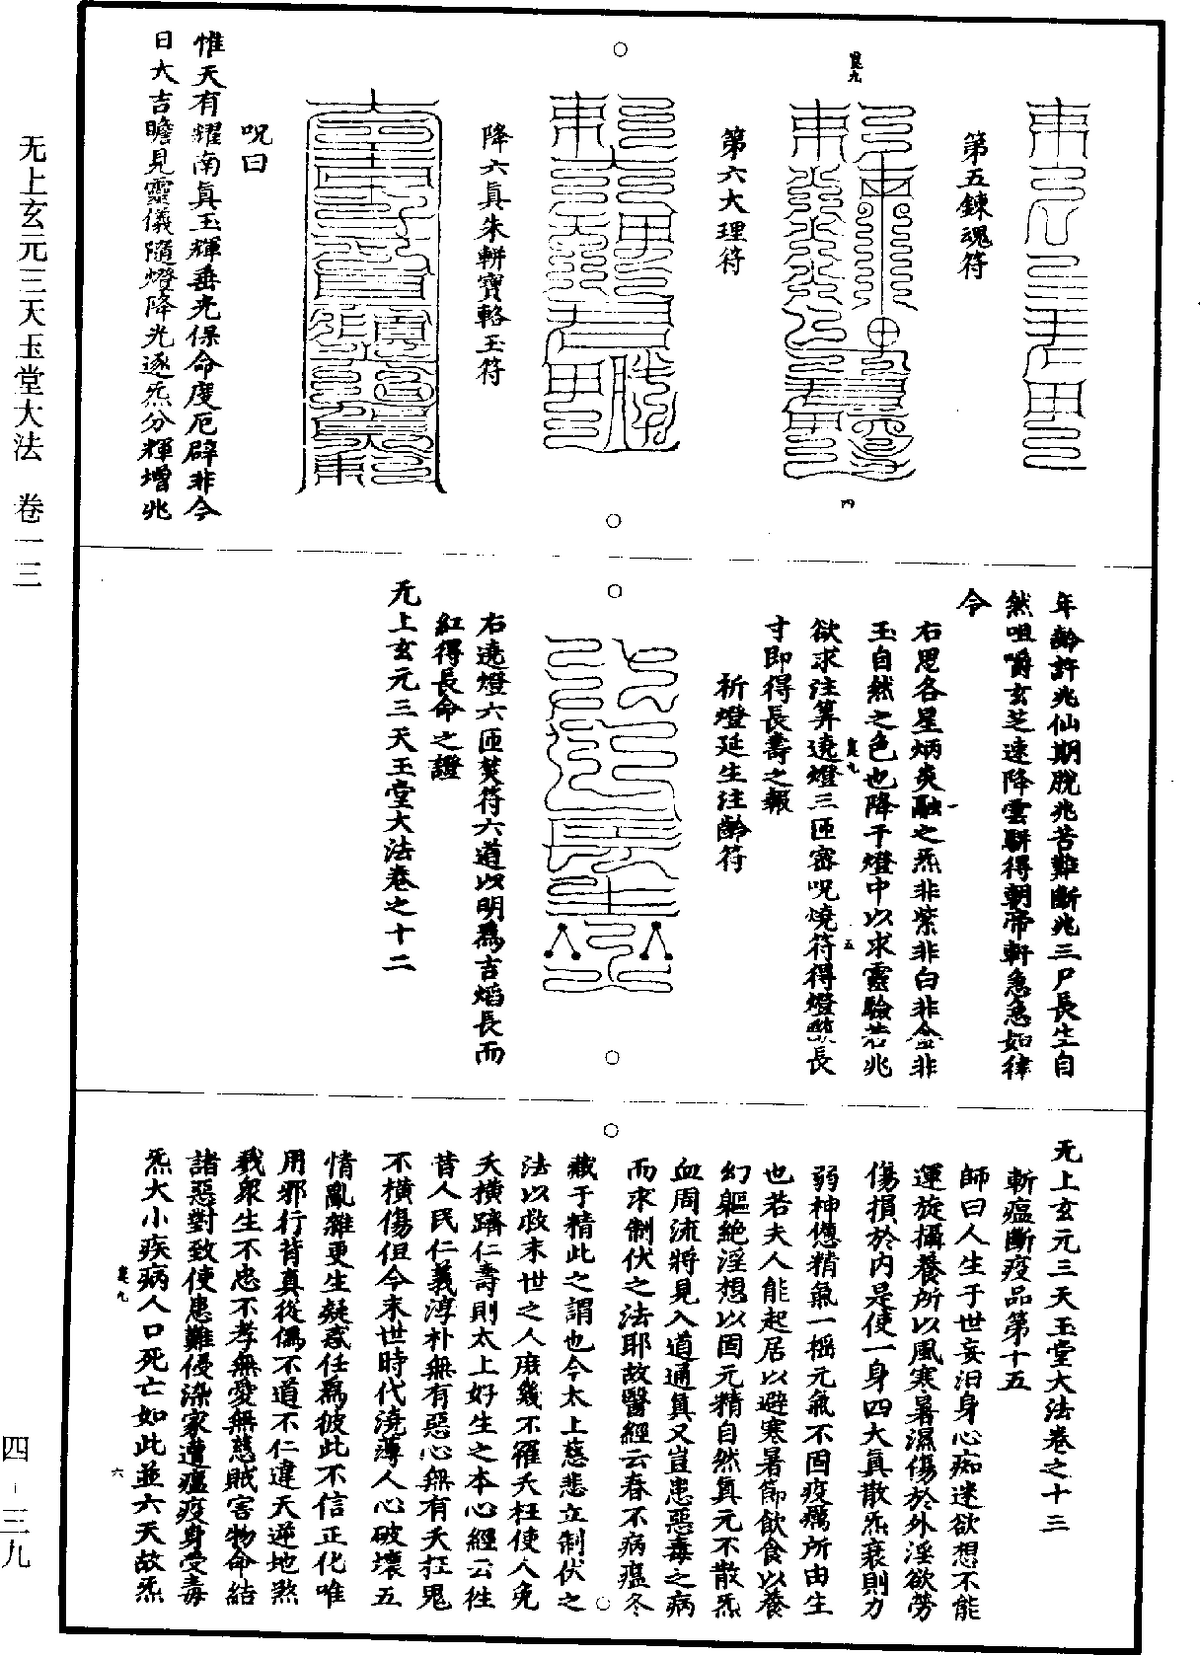 无上玄元三天玉堂大法 卷一三
四-三九
第五鍊魂符
第六大理符
降六真朱軿寶輅玉符
呪曰
惟天有耀南真玉輝垂光保命度厄辟非今
日大吉瞻見靈儀隨燈降光逐炁分輝增兆
年齡許兆仙期脫兆苦難斷兆三尸長生自
然咀嚼玄芝速降雲軿得朝帝軒急急如律
令
右思各星炳炎融之炁非紫非白非金非
玉自然之色也降于燈中以求靈驗若兆
欲求注筭遶燈三匝密呪燒符得燈燄長
寸即得長壽之報
祈燈延生注齡符
右遶燈六匝焚符六道以明爲吉熖長而
紅得長命之證
无上玄元三天玉堂大法卷之十二
无上玄元三天玉堂大法卷之十三
斬瘟斷疫品第十五
師曰人生于世妄汨身心痴迷欲想不能
運旋攝養所以風寒暑濕傷於外淫欲勞
傷損於内是使一身四大真散炁衰則力
弱神憊精氣一摇元氣不固疫癘所由生
也若夫人能起居以避寒暑節飲食以養
幻軀絶淫想以固元精自然真元不散炁
血周流將見入道通真又豈患惡毒之病
而求制伏之法耶故醫經云春不病瘟冬
藏于精此之謂也今太上慈悲立制伏之
法以救末世之人庶幾不罹夭枉使人免
夭横躋仁壽則太上好生之本心經云徃
昔人民仁義淳朴無有惡心無有夭狂鬼
不横傷但今末世時代澆薄人心破壞五
情亂雜更生疑惑任爲彼此不信正化唯
用邪行背真從僞不道不仁違天逆地煞
我衆生不忠不孝無愛無慈賊害物命結
諸惡對致使患難侵染家遭瘟疫身受毒
炁大小疾病人口死亡如此並六天故炁
四
五
六